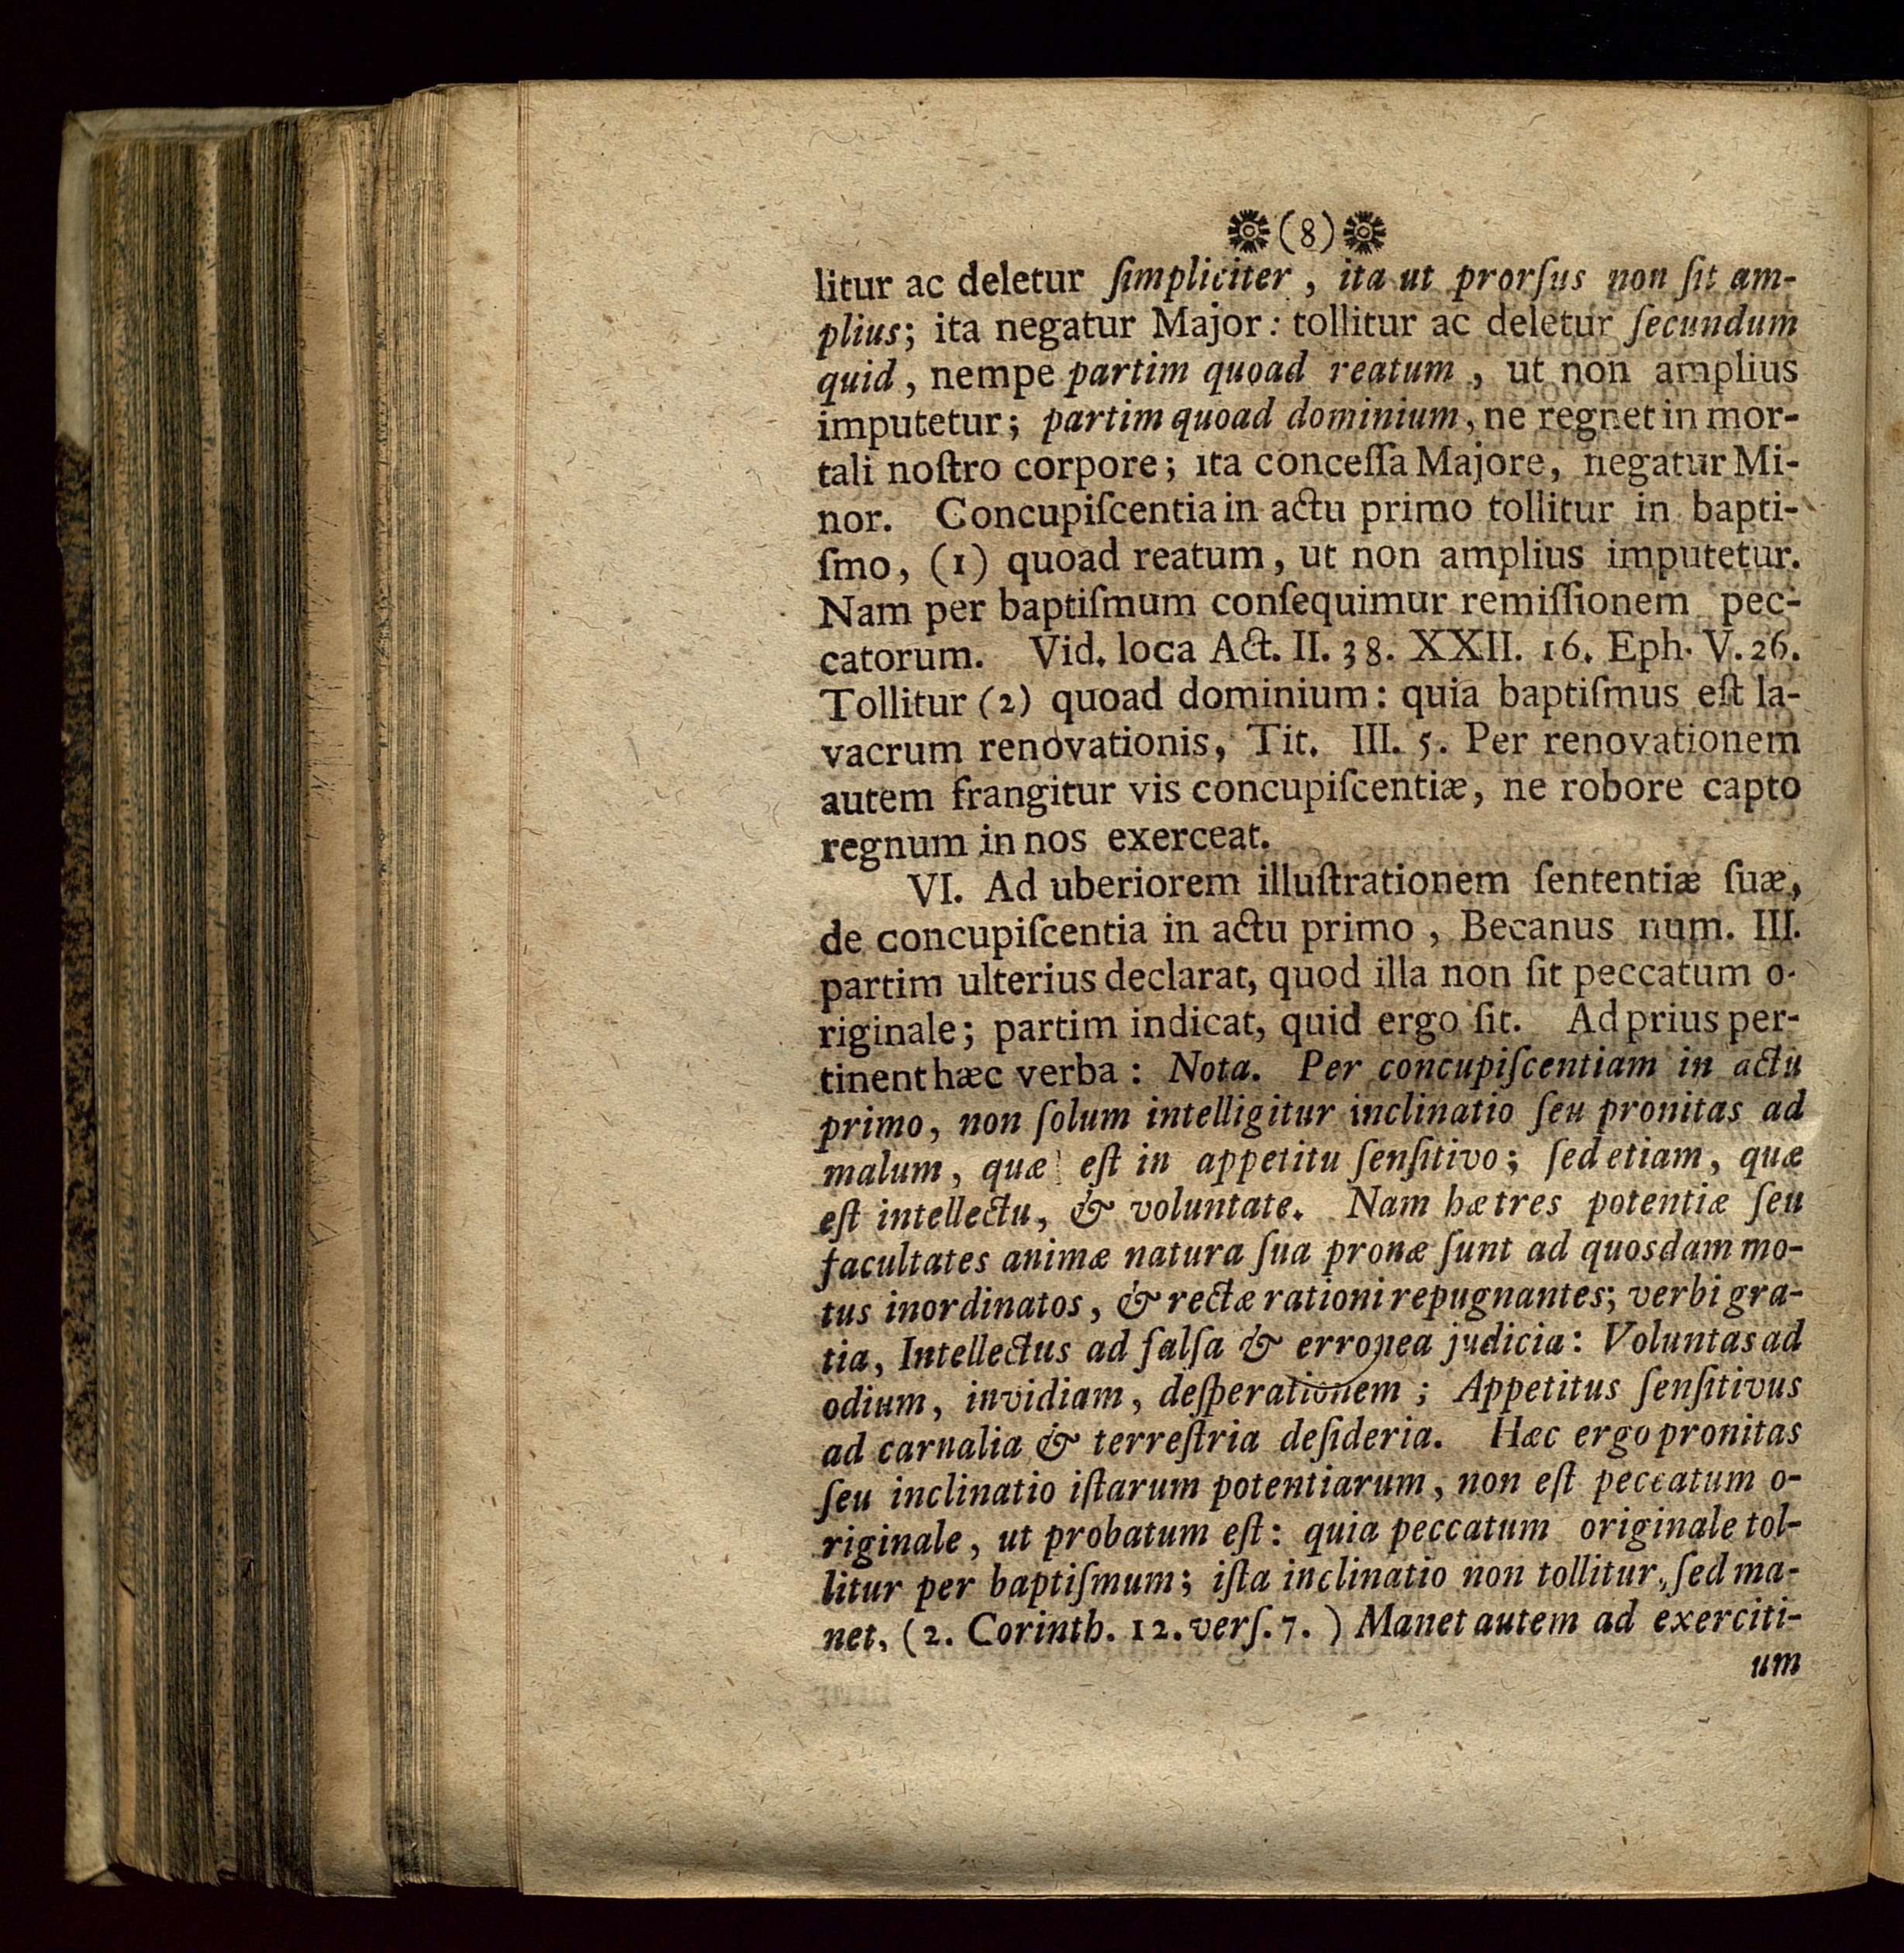 (8)
litur ac deletur ſimpliciter, ita ut prorſus non ſit am-
plius; ita negatur Major: tollitur ac deletur ſecundum
quid, nempe partim quoad reatum, ut non amplius
imputetur; partim quoad dominium, ne regnet in mor-
tali noſtro corpore; ita conceſſa Majore, negatur Mi-
nor. Concupiſcentia in actu primo tollitur in bapti-
ſmo, (1) quoad reatum, ut non amplius imputetur.
Nam per baptiſmum conſequimur remiſſionem pec-
catorum. Vid. loca Act. II. 38. XXII. 16. Eph. V. 26.
Tollitur (2) quoad dominium: quia baptiſmus eſt la-
vacrum renovationis, Tit. III. 5. Per renovationem
autem frangitur vis concupiſcentiæ, ne robore capto
regnum in nos exerceat.
VI. Ad uberiorem illuſtrationem ſententiæ ſuæ,
de concupiſcentia in actu primo, Becanus num. III.
partim ulterius declarat, quod illa non ſit peccatum o-
riginale; partim indicat, quid ergo ſit. Ad prius per-
tinent hæc verba: Nota. Per concupiſcentiam in actu
primo, non ſolum intelligitur inclinatio ſeu pronitas ad
malum, quæ eſt in appetitu ſenſitivo; ſed etiam, quæ
eſt intellectu, & voluntate. Nam hæ tres potentiæ ſeu
facultates animæ natura ſua pronæ ſunt ad quosdam mo-
tus inordinatos, & rectæ rationi repugnantes; verbi gra-
tia, Intellectus ad falſa & erronea judicia: Voluntas ad
odium, invidiam, deſperationem; Appetitus ſenſitivus
ad carnalia & terreſtria deſideria. Hæc ergo pronitas
ſeu inclinatio iſtarum potentiarum, non eſt peccatum o-
riginale, ut probatum eſt: quia peccatum originale tol-
litur per baptiſmum; iſta inclinatio non tollitur, ſed ma-
net, (2. Corinth. 12. verſ. 7. ) Manet autem ad exerciti-
um